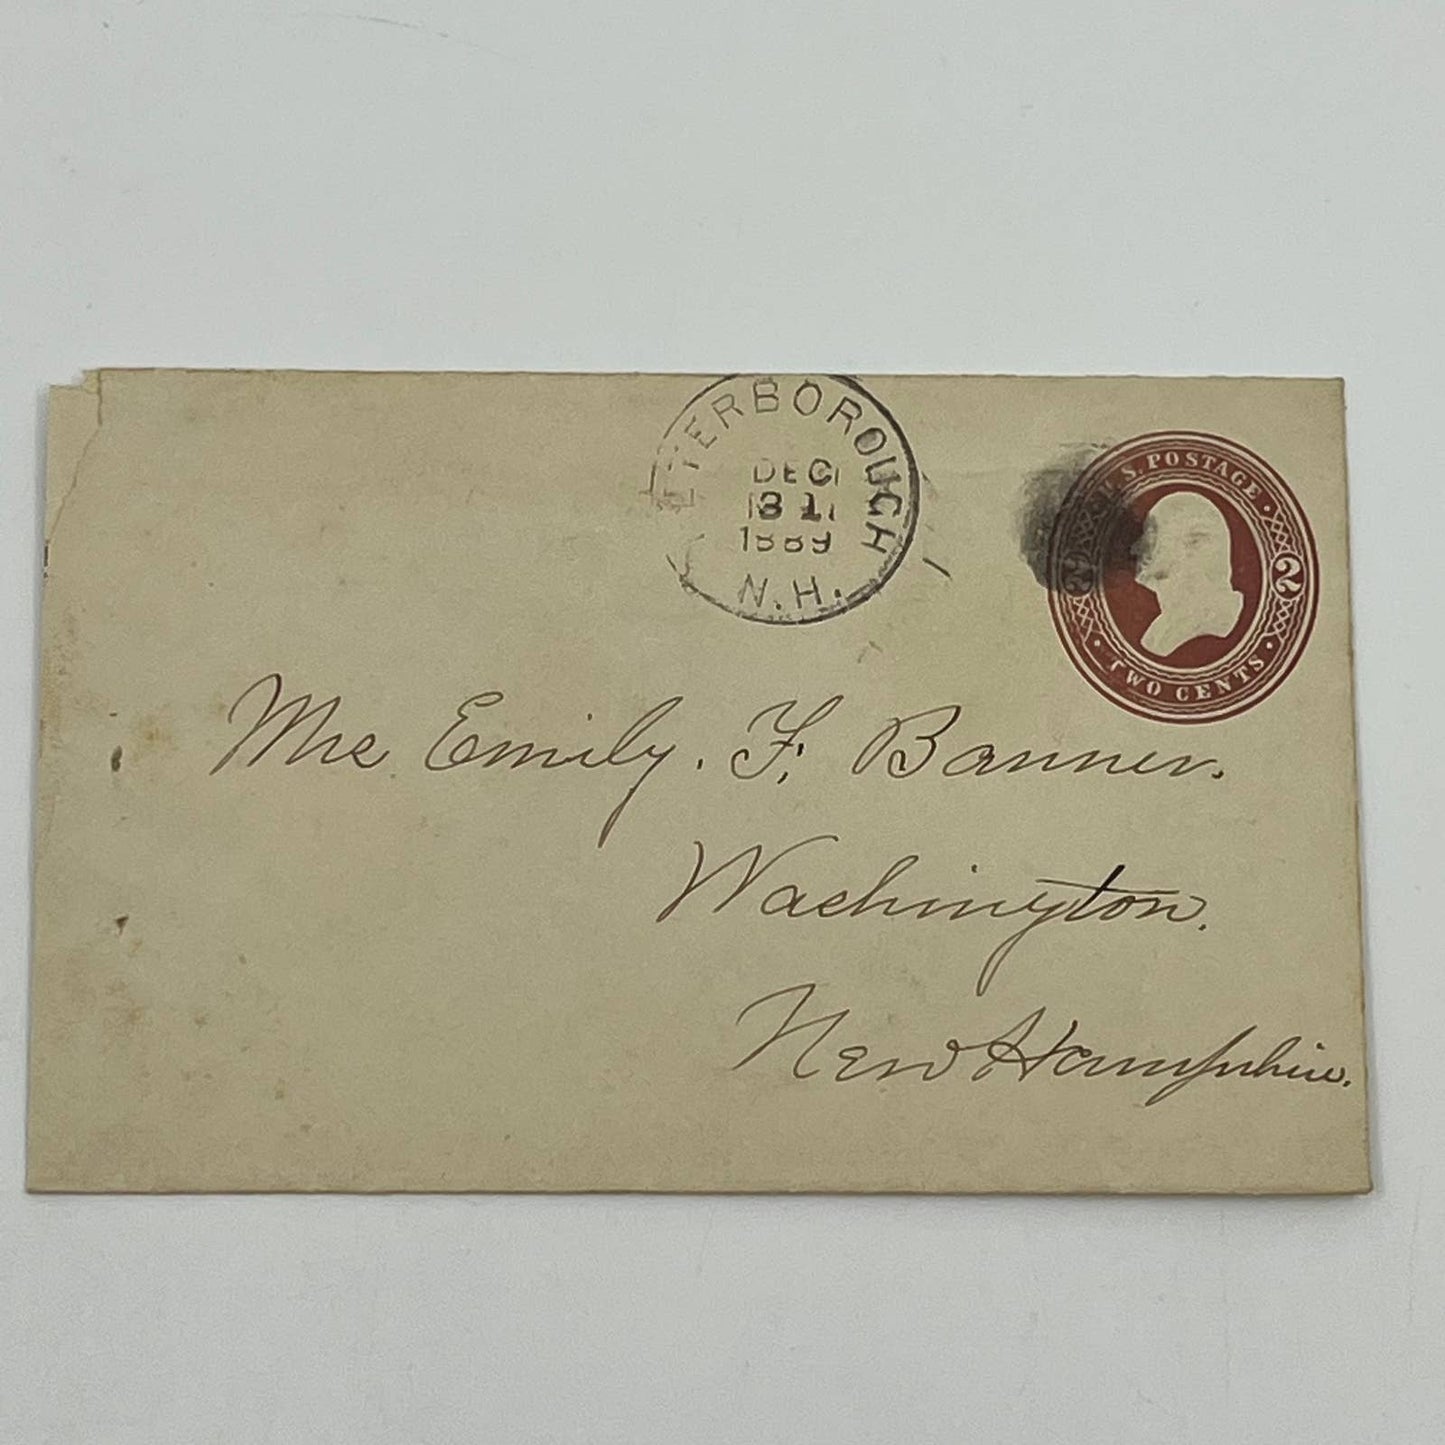 ETERBOROUGH
DEC
31
1889
N.H.
U.S. POSTAGE
2 2
TWO CENTS
Mrs Emily. F. Banner.
Washington.
New Hampshire.